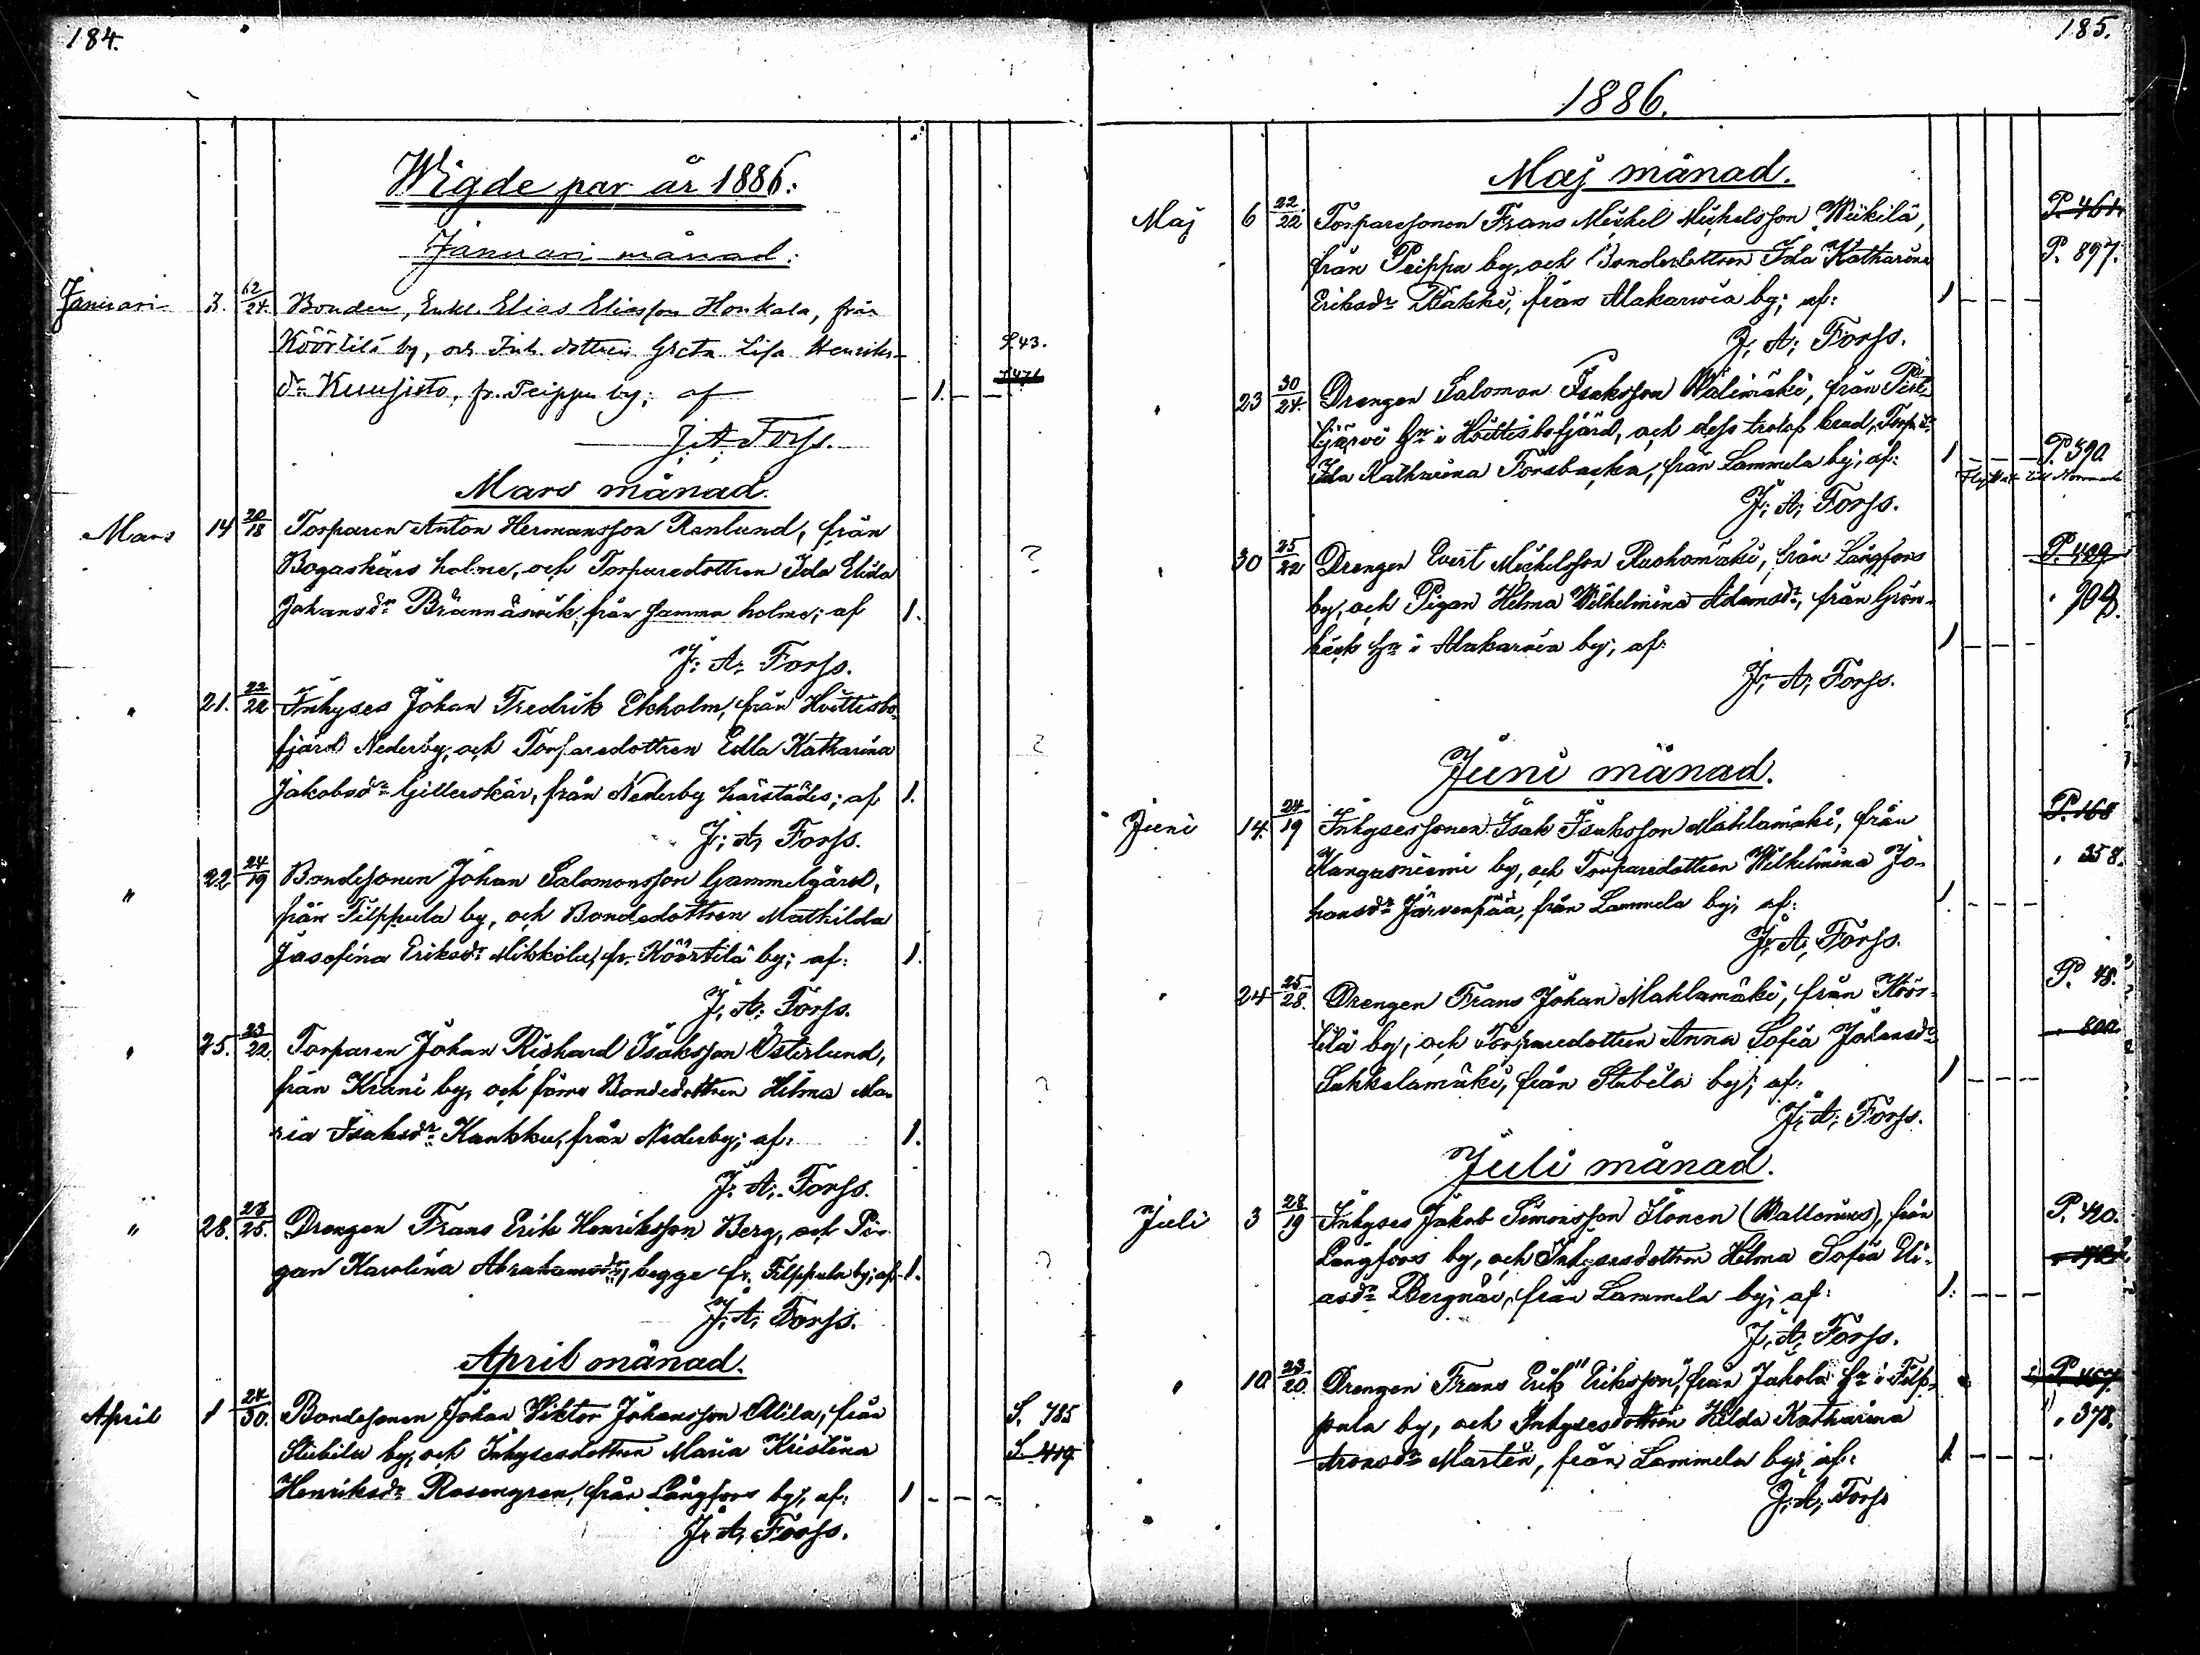 184.
Wigde par år 1886.
Januari månad.
Januari 3. 62/24. Bonden, Enkl. Elias Eliasson Honkala, från
Köörtilä by, och Inh. dottren Greta Lisa Henriks- S. 43.
dr Kuusisto, fr. Peippu by; af 1.
J. A. Forss.
Mars månad.
Mars 14 20/18 Torparen Anton Hermansson Renlund, från
Bogaskärs holme, och Torparedottren Ida Elida ?
Johansdr Brännäsvik, från samma holme; af 1.
J. A. Forss.
" 21. 22/22 Inhyses Johan Fredrik Ekholm, från Hvittisbo-
fjärd Nederby, och Torparedottren Edla Katharina ?
Jakobsdr Gillerskär, från Nederby härstädes; af 1.
J. A. Forss.
" 22 24/19 Bondesonen Johan Salomonsson Gammelgård,
från Filppula by, och Bondedottren Mathilda ?
Josefina Eriksdr Mikkola, fr. Köörtilä by; af: 1.
J. A. Forss.
" 25. 23/22 Torparen Johan Rickard Isaksson Österlund,
från Krani by, och förra Bondedottren Hilma Ma- ?
ria Isaksdr Kankku, från Nederby; af: 1.
J. A. Forss.
" 28. 23/25. Drengen Frans Erik Henriksson Berg, och Pi-
gan Karolina Abrahamsdr, begge fr. Filppula by; af 1. ?
J. A. Forss.
April månad.
April 1 24/30. Bondesonen Johan Viktor Johansson Alila, från S. 785
Stubila by, och Inhysesdottren Maria Kristina S. 419
Henriksdr Rosengren, från Långfors by, af: 1 - - -
J. A. Forss.
185.
1886.
Maj månad.
Maj 6 22/22 Torparesonen Frans Mickel Mickelsson Wiikilä, P. 461.
från Peippu by, och Bondedottren Ida Katharina P. 897.
Eriksdr Bäkki, från Alakarvia by; af: 1 - - -
J. A. Forss.
" 23 30/24. Drengen Salomon Isaksson Wälimäki, från
hn i Hvittisbofjärd, och dess trolof. brud, Torp. dr
Ida Katharina Forsbacka, från Lammela by; af: 1 - - - P. 390.
J. A. Forss.
" 30 25/22 Drengen Evert Mickelsson Ruohomäki, från Långfors P. 409
by, och Pigan Helma Wilhelmina Adamsdr, från Grön- " 909.
back hn i Alakarvia by; af: 1 - - -
J. A. Forss.
Juni månad.
Juni 14. 24/19 Inhysessonen Isak Isaksson Mahlamäki, från P. 168
Kangasniemi by, och Torparedottren Wilhelmina Jo- " 358.
hansdr Järvenpää, från Lammela by; af: 1 - - -
J. A. Forss.
" 24 25/28. Drengen Frans Johan Mahlamäki, från Köör- P. 48.
tilä by, och Torparedottren Anna Sofia Johansdr " 800.
Sakkelamäki, från Stubila by; af: 1 - - -
J. A. Forss.
Juli månad.
Juli 3 28/19 Inhyses Jakob Simonsson Ilonen (Wallenius), från P. 420.
Långfors by, och Inhysesdottren Helma Sofia Eli-
asdr Bergnäs, från Lammela by; af: 1. - - -
J. A. Forss.
" 10. 23/20. Drengen Frans Erik Eriksson, från Jakola hn i Filp- P. 457.
pula by, och Inhysesdottren Hilda Katharina " 378.
Aronsdr Martin, från Lammela by; af: 1 - - -
J. A. Forss